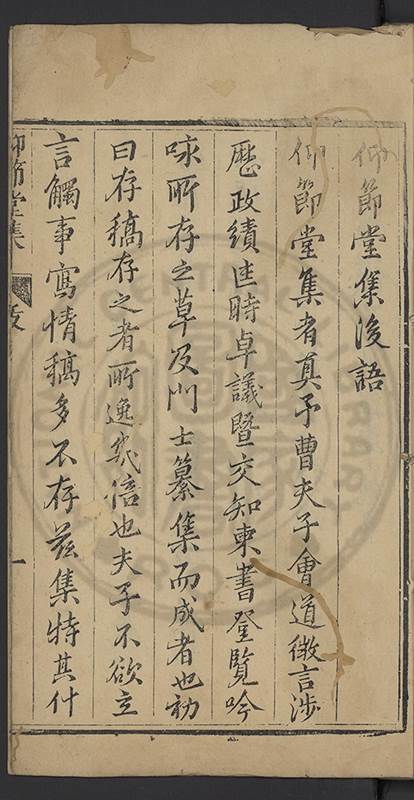 仰節堂集後語
仰節堂集者真予曹夫子會道微言涉
歷政績匡時卓議暨交知柬書登覽吟
咏所存之草及門士纂集而成者也初
曰存稿存之者所逸幾倍也夫子不欲立
言觸事寫情稿多不存茲集特其什
仰節堂集
一